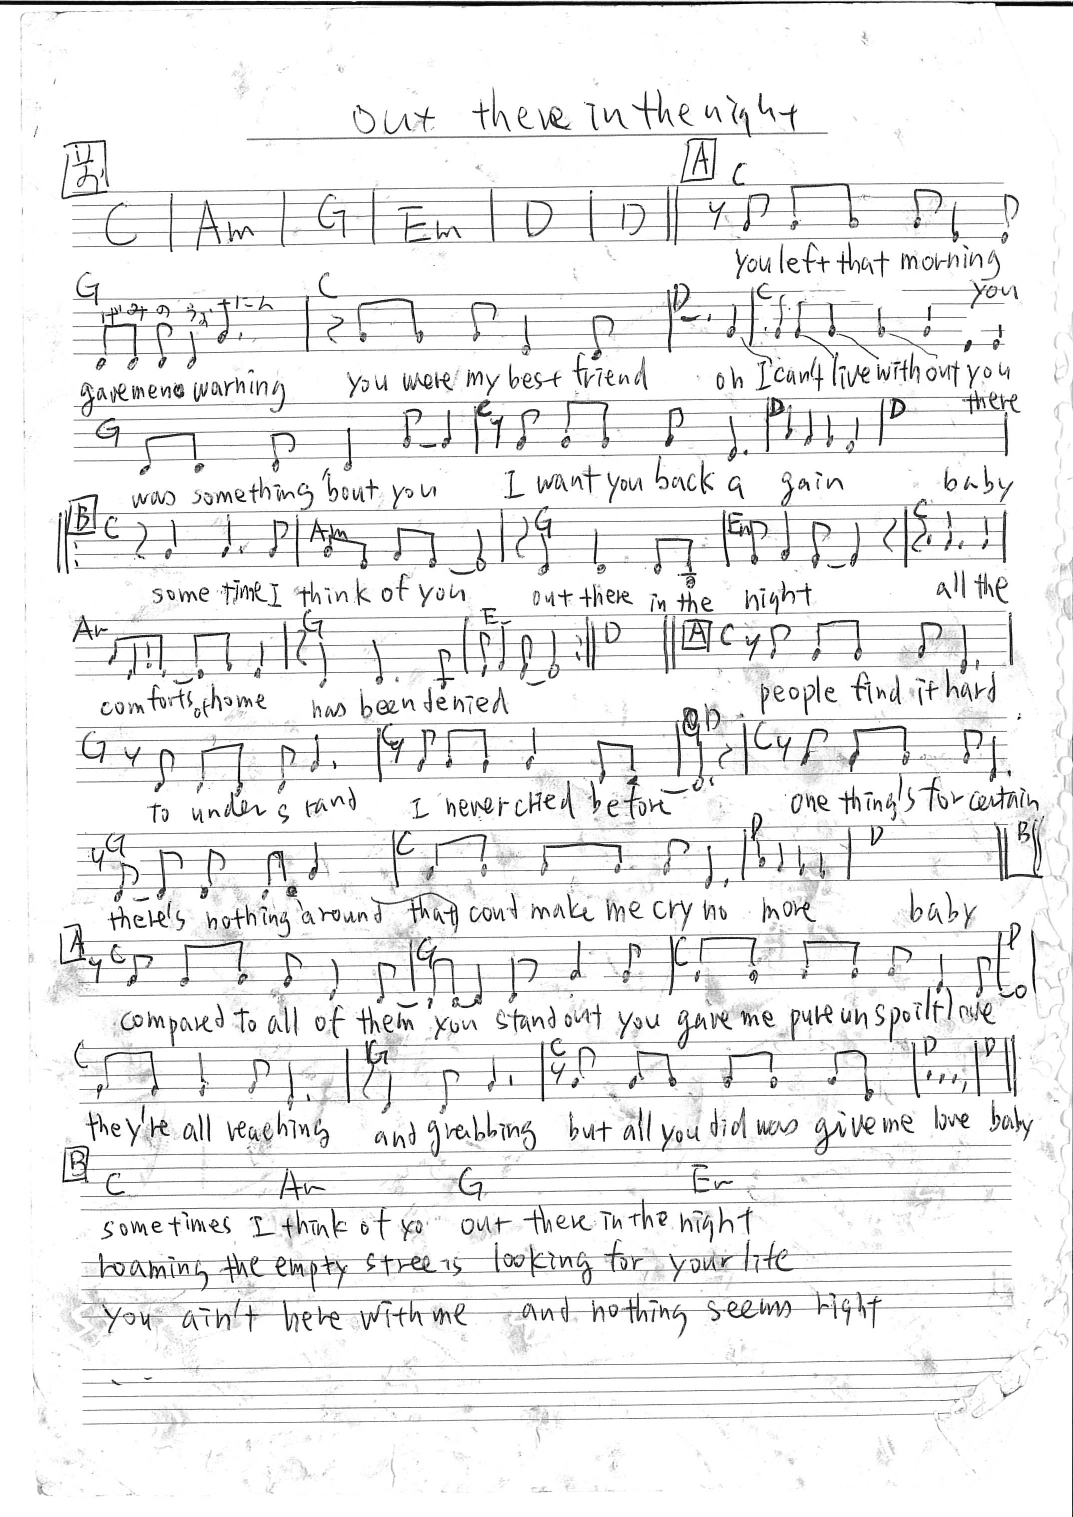 out there in the night
A C
C Am G Em D D
you left that morning
you
G C D C
gave me no warning you were my best friend oh I can't live without you
there
G C D D
was something 'bout you I want you back a gain baby
B C Am G Em C
some time I think of you out there in the night all the
Am G Em D A C
comforts of home has been denied people find it hard
G C D C
to under s rand I never cried before one thing's for certain
G C D D B
there's nothing around that coud make me cry no more baby
A C G C D
compared to all of them you stand out you gave me pure unspoilt love
C G C D D
they're all reaching and grabbing but all you did was give me love baby
B C Am G Em
sometimes I think of yo out there in the night
roaming the empty streets looking for your life
you ain't here with me and nothing seems right